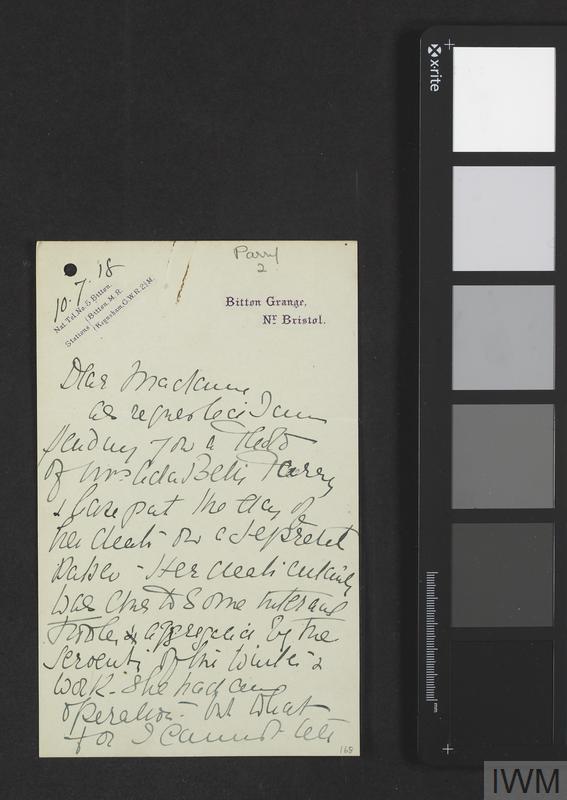 x-rite
Parry
2
10.7.18
Nat. Tel. No. 5 Bitton.
Stations {Bitton, M.R.
{Keynsham, G.W.R. 2½ M.
Bitton Grange,
Nr Bristol.
Dear Madame
as requested I am
sending you a Photo
of Mrs Ada Betty Parry
& have put the day of
her death on a seperate
Paper - Her death entirely
was due to some internal
trouble & aggregated by the
serverity of the winter &
work. She had an
operation - but what
for I cannot tell
168
mm
IWM